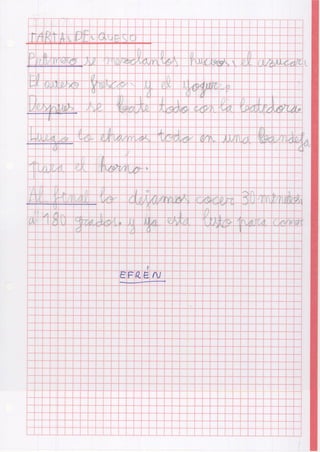 TARTA DE QUESO
Primero se mezclan los huevos, el azucar,
El queso fresco y el yogur.
Despues se bate todo con la batidora.
Luego lo echamos todo en una bandeja
para el horno.
Al final lo dejamos cocer 30 minutos
a 180 grados. y ya esta listo para comer
EFRÉN